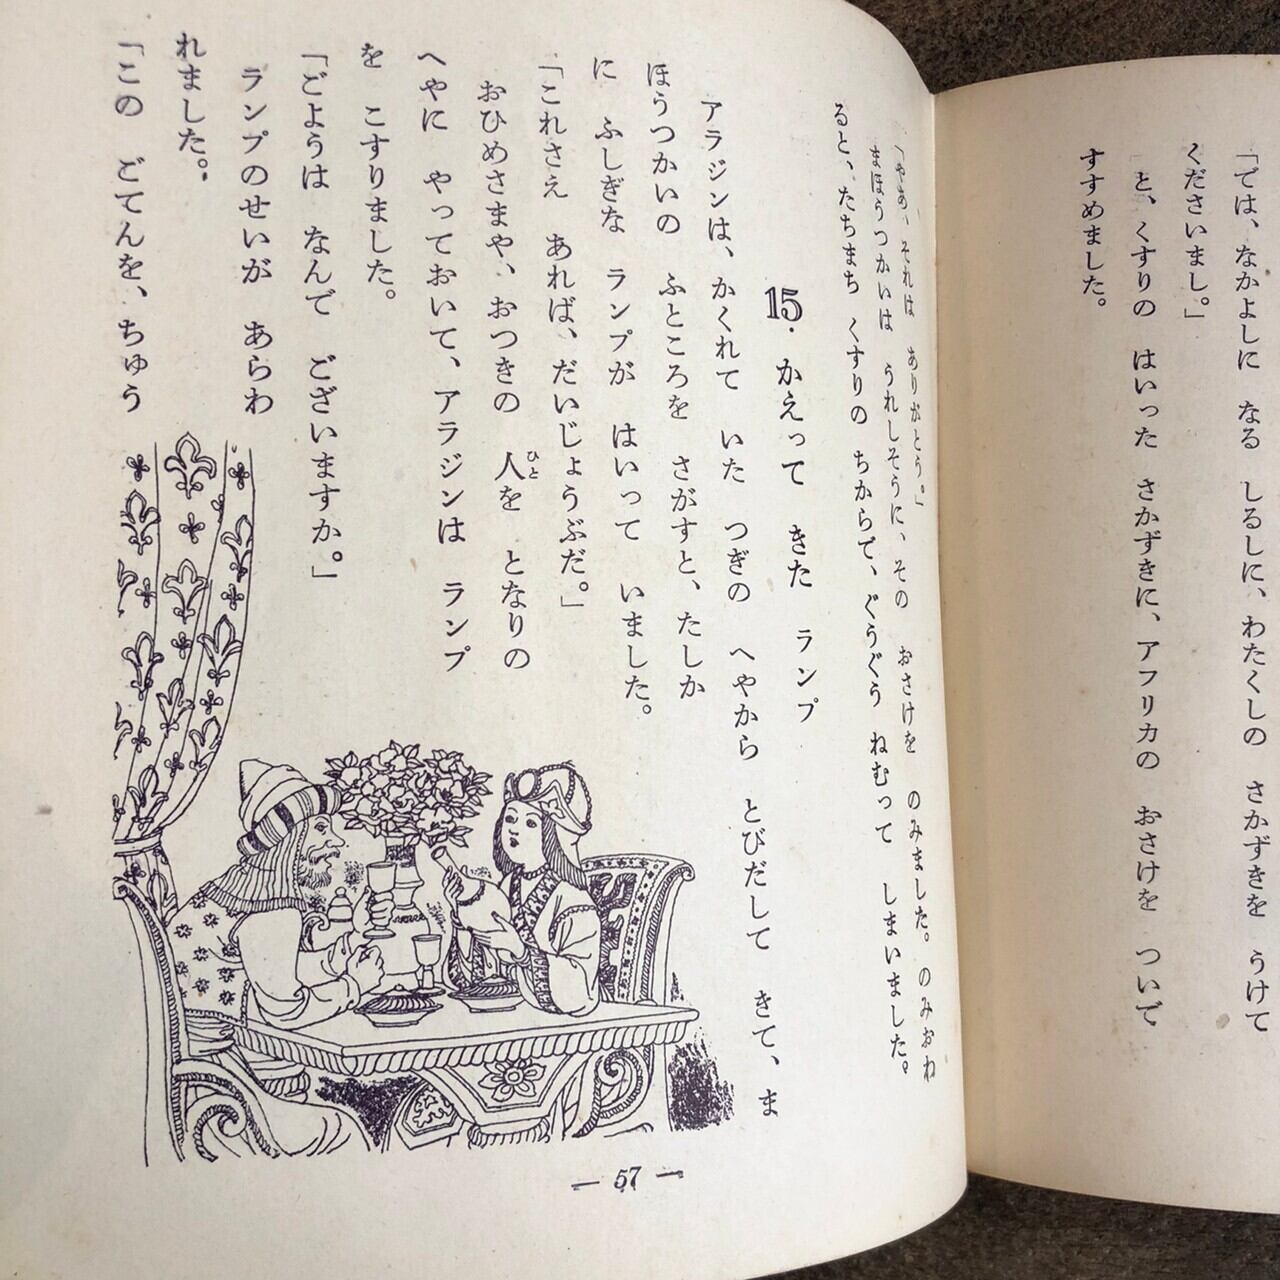 「では、なかよしに なる しるしに、わたくしの さかずきを うけて
くださいまし。」
と、くすりの はいった さかずきに、アフリカの おさけを ついで
すすめました。
「やあ、それは ありがとう。」
まほうつかいは うれしそうに、その おさけを のみました。のみおわ
ると、たちまち くすりの ちからで、ぐうぐう ねむって しまいました。
15. かえって きた ランプ
アラジンは、かくれて いた つぎの へやから とびだして きて、ま
ほうつかいの ふところを さがすと、たしか
に ふしぎな ランプが はいって いました。
「これさえ あれば、だいじょうぶだ。」
おひめさまや、おつきの 人を となりの
ひと
へやに やっておいて、アラジンは ランプ
を こすりました。
「ごようは なんで ございますか。」
ランプのせいが あらわ
れました。
「この ごてんを、ちゅう
— 57 —